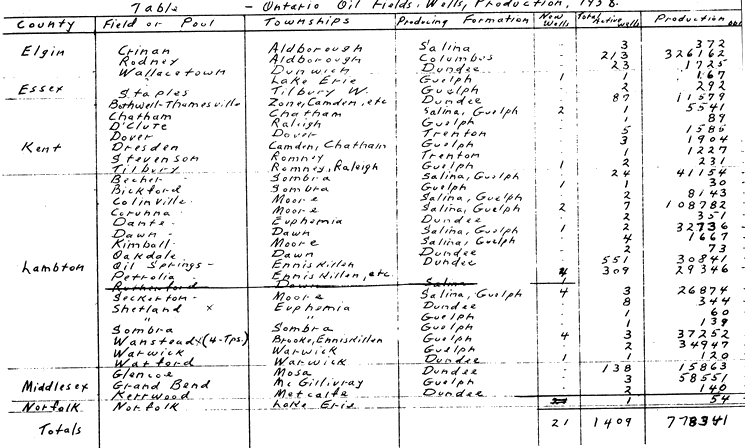 Table - Ontario Oil Fields, Wells, Production, 1958.
County Field or Pool Townships Producing Formation New Wells Total Active Wells Production bbl
Elgin Crinan Aldborough Salina . 3 372
Rodney Aldborough Columbus . 213 326162
Wallacetown Dunwich Dundee . 23 1725
Lake Erie Guelph 1 1 167
Essex Staples Tilbury W. Guelph . 2 292
Bothwell-Thamesville Zone, Camden, etc Dundee . 87 11579
Chatham Chatham Salina, Guelph 2 . 5541
D'Clute Raleigh Guelph . 1 89
Dover Dover Trenton . 5 1586
Kent Dresden Camden, Chatham Guelph . 3 1904
Stevenson Romney Trenton . 1 1227
Tilbury Romney, Raleigh Guelph 1 2 231
Becher - Sombra Salina, Guelph . 24 41154
Bickford Sombra Guelph 1 1 30
Colinville - Moore Salina, Guelph . 2 8143
Corunna - Moore Salina, Guelph 2 7 108782
Dante - Euphemia Dundee . 2 351
Dawn - Dawn Salina, Guelph 1 2 32736
Kimball - Moore Salina, Guelph . 4 1667
Oakdale Dawn Dundee . 2 73
Lambton Oil Springs - Enniskillen Dundee . 551 30841
Petrolia - Enniskillen, etc. 4 309 29346
Rutherford Dawn Salina 1
Seckerton - Moore Salina, Guelph 4 3 26874
Shetland x Euphemia Dundee . 8 344
" Guelph . 1 60
Sombra Sombra Guelph . 1 139
Wanstead x (4-Tps.) Brooke, Enniskillen Guelph 4 3 37252
Warwick Warwick Guelph . 2 34947
Watford Warwick Dundee 1 1 120
Glencoe Mosa Dundee . 138 15863
Middlesex Grand Bend McGillivray Guelph . 3 58551
Kerrwood Metcalfe Dundee . 2 140
Norfolk Norfolk Lake Erie 1 54
Totals 21 1409 778341